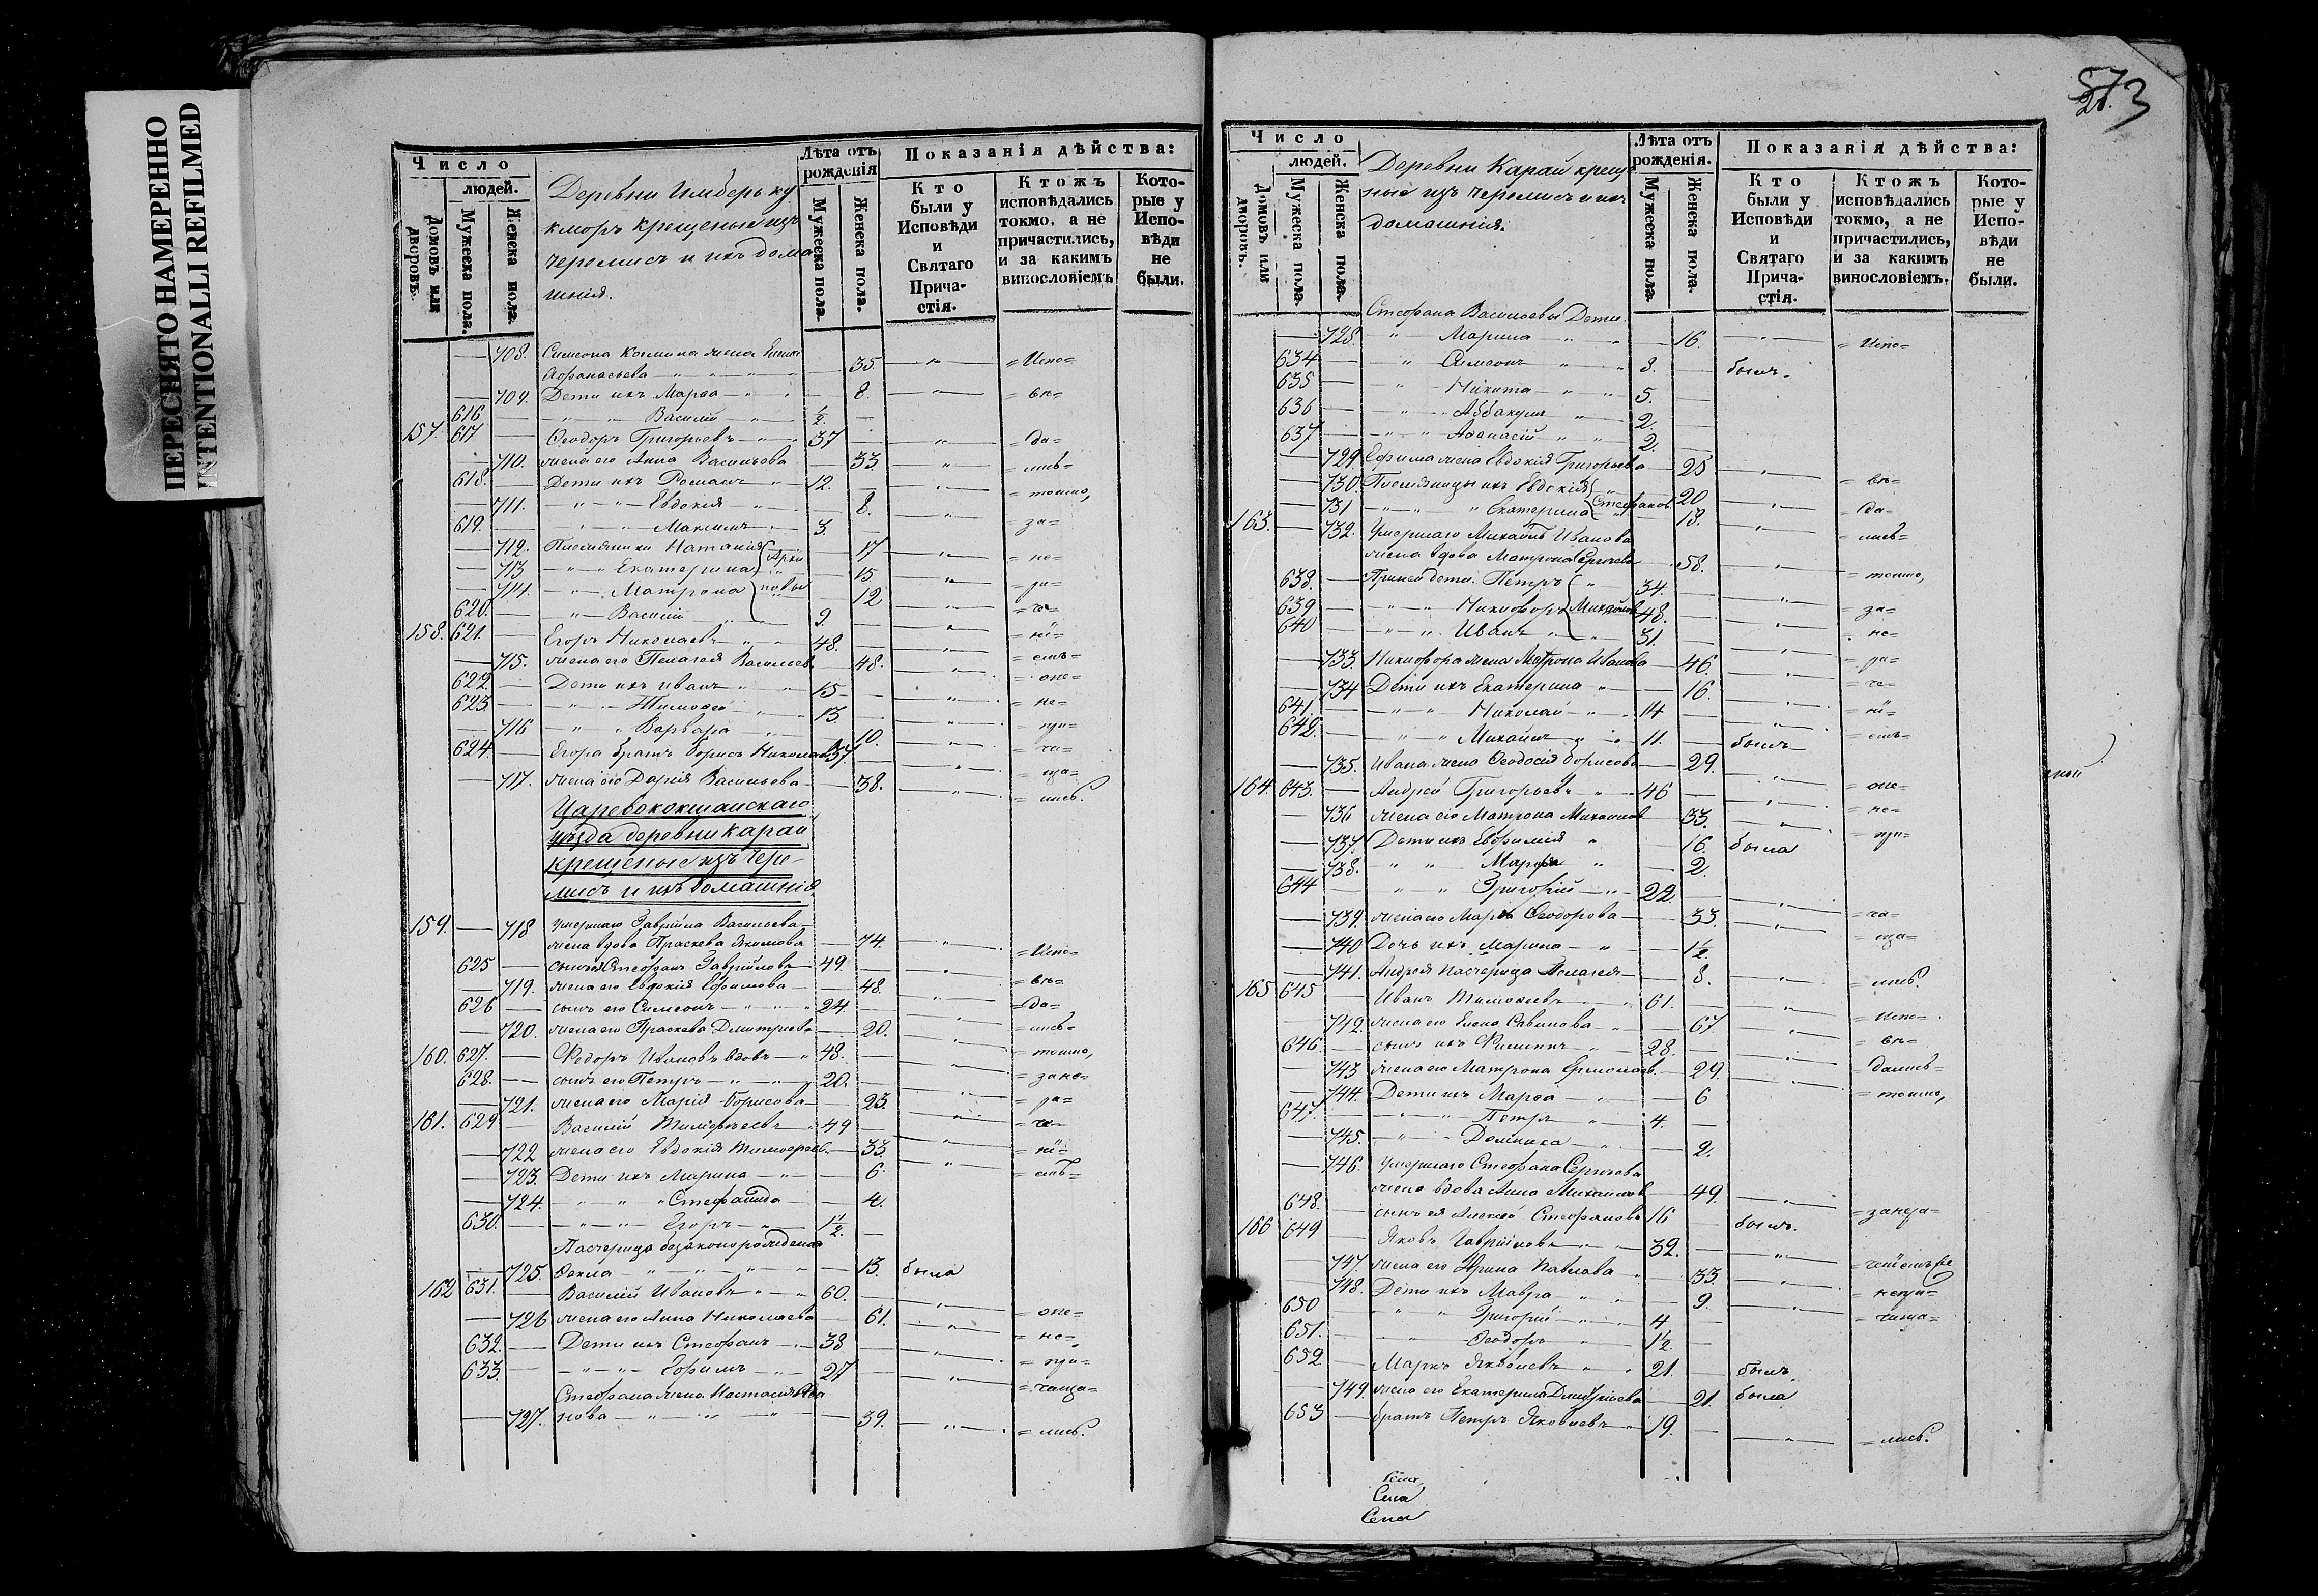 ПЕРЕСНЯТО НАМЕРЕННО
INTENTIONALLI REFILMED
Число
людей.
Домовъ или дворовъ.
Мужеска пола.
Женска пола.
Деревни
кморъ крещеные изъ
черемисъ и ихъ дома
шнія.
Лѣта отъ рожденія
Мужеска пола.
Женска пола.
Показанія дѣйства:
Кто были у Исповѣди и Святаго Прича-стія.
Ктожъ исповѣдались токмо, а не причастились, и за какимъ винословіемъ
Кото-рые у Испо-вѣди не были.
708. Симеона жена
Афанасьева 35. Испо=
709. Дети ихъ Марѳа 8. =вѣ=
616 Василій ½
157. 617 Ѳеодоръ Григорьевъ 37 =да=
710. жена его Анна Васильева 33 =лись=
618. Дети ихъ Романъ 12. =токмо,
711. Евдокія 8. =за=
619. Максимъ 3.
712. Племянники Наталія 17 =не=
713 Екатерина 15.
714. Матрона 12
620. Василій 9.
158. 621. Егоръ Николаевъ 48. =ні=
715. жена его Пелагея Васильев 48. =емъ=
622. Дети ихъ Иванъ 15
623. Тимоѳей 13. =не=
716 Варвара 10. =при=
624. Егора братъ Борисъ Николаев 37 =ча=
717. жена его Дарія Васильева 38. =лись.
Царевококшайскаго
уѣзда деревни Карай
крещеные изъ чере-
мисъ и ихъ домашнія
159. 718 Умершаго Гавріила Васильева
жена вдова Праскева Якимова 74. =Испо=
625 сынъ Стефанъ Гавріиловъ 49.
719. жена его Евдокія Ефимова 48. =вѣ=
626 сынъ его Симеонъ 24. =да=
720. жена его Праскева Дмитріева 20. =лись=
160. 627. Ѳедоръ Ивановъ вдовъ 48. =токмо,
628. сынъ его Петръ 20. =зане=
721. жена его Марія Борисова 23.
161. 629 Василій Тимоѳеевъ 49
722 жена его Евдокія 33 =ні=
723. Дети ихъ Марина 6. =емъ=
724. Стефанида 4.
630. Егоръ 1½
Пасчерица безаконорожденая
725. Ѳекла 13. была
162 631. Василій Ивановъ 60.
726 жена его Анна Николаева 61.
632. Дети ихъ Стефанъ 38 =не=
633. Ефимъ 27 =при=
Стефана жена Настасія Ива
727. нова 39. =лись.
573
Число
людей.
Домовъ или дворовъ.
Мужеска пола.
Женска пола.
Деревни Карай креще
ные изъ черемисъ и ихъ
домашнія.
Лѣта отъ рожденія.
Мужеска пола.
Женска пола.
Показанія дѣйства:
Кто были у Исповѣди и Святаго Прича-стія.
Ктожъ исповѣдались токмо, а не причастились, и за какимъ винословіемъ.
Кото-рые у Испо-вѣди не были.
Стефана Васильева Дети
728. Марина 16. =Испо=
634 Симеонъ 8. былъ
635 Никита 5.
636 Аввакумъ 2.
637 Аѳанасій 2.
729. Ефима жена Евдокія Григорьева 25
730. Племяницы ихъ Евдокія 20 =вѣ=
731 Екатерина Стефанов 18. =да=
163. 732. Умершаго Михаила Иванова =лись=
жена вдова Матрона Сергѣева 58. =токмо,
638. При ней дети. Петръ 34.
639 Никифоръ Михайлов 48. =за=
640 Иванъ 31. =не=
733. Никифора жена Матрона Иванова 46.
734 Дети ихъ Екатерина 16.
641. Николай 14 =ні=
642. Михаилъ 11. былъ =емъ=
735. Ивана жена Ѳеодосія Борисова 29.
164. 643. Андрей Григорьевъ 46
736 жена его Матрона Михайлов 33. =не=
737. Дети ихъ Евфимія 16. была =при=
738. Марфа 2.
644 Григорій 22
739. жена его Марія Ѳеодорова 33. =ча=
740 Дочь ихъ Марина 1½
741. Андрея пасчерица Пелагея 8. =лись.
165 645 Иванъ Тимоѳеевъ 61.
742. жена его Елена Савинова 67 =Испо=
646. сынъ ихъ Филиппъ 28. =вѣ=
743 жена его Матрона Ермолаев 29. =дались=
744. Дети ихъ Марѳа 6 =токмо,
647. Петръ 4.
745. Домника 2.
746. Умершаго Стефана Сергѣева
жена вдова Анна Михайлов 49.
648. сынъ ея Алексей Стефановъ 16 былъ.
166 649 Яковъ Гавріиловъ 39.
747. жена его Ирина Павлова 33.
748. Дети ихъ Мавра 9.
650 Григорій 4
651. Ѳеодоръ 1½
652 Маркъ Яковлевъ 21. былъ
749. жена его Екатерина Дмитріева 21. была
653 братъ Петръ Яковлевъ 19. =лись.